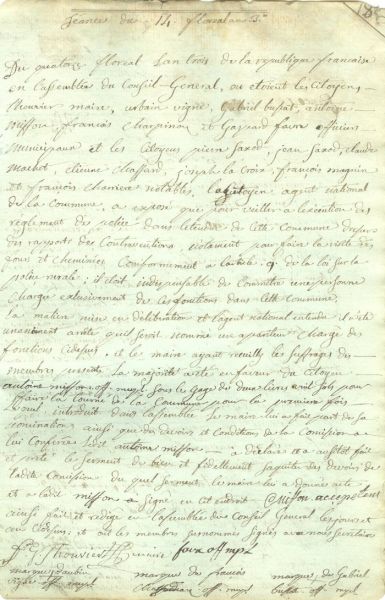 Séance du 14 floréal an 3e
Du quatorze floréal l'an trois de la république française
en l'assemblée du Conseil-Général, ou étoient les Citoyens
maire, urbain vigne, Gabriel antoine
misson, francois Charpinas et Gaspard faure officiers
Municipaux et les Citoyens pierre Sarod, jean Sarod, claude
Machot, etienne Chassard, joseph la Croix, francois maguin
et françois Charriere notables, le Citoyen agent national
de la Commune, a exposé que pour veiller a lexécution des
règlement de police dans letendue de Cette Commune dresser
des rapport des Contraventions notament pour faire la visite des
fours et cheminées Conformement a article 9 de la loi sur la
police rurale; il étoit indispensable de Connaitre une personne
Chargé exclusivement de Ces fonctions dans Cette Commune.
La matiere mise en délibération et lagent national entendu il a été
unanimement arreté qu'il seroit nommé un apariteur Chargé de
fonctions Cidessus, et le maire ayant recueilly les suffrages des
membres présents la majorité a été en faveur du Citoyen
antoine misson off. mupl sous le gage de deux livres sols pour
faire la tourné de la Commune pour la premiere fois
introduit dans lassemblée le maire lui a fait part de sa
nomination ainsi que du devoirs et Conditions de la Comission a
lui Conférée ledit antoine misson a déclaré et a aussitot fait
et prêté le serment de bien et fidellement saquiter des devoirs de
ladite Comission du quel serment le maire lui a donné acte
et a ledit misson a signé en cet endroit Misson acceptent
ainsi fait et rédigé en lassemblée du Conseil Général les jour et
an Cidessus, et ont les membres susnommés signés avec nous secrétaire
maire faure off mpl
marque durbin marque de francois marque de Gabriel
vigne off. mupl off. mupl off. mupl